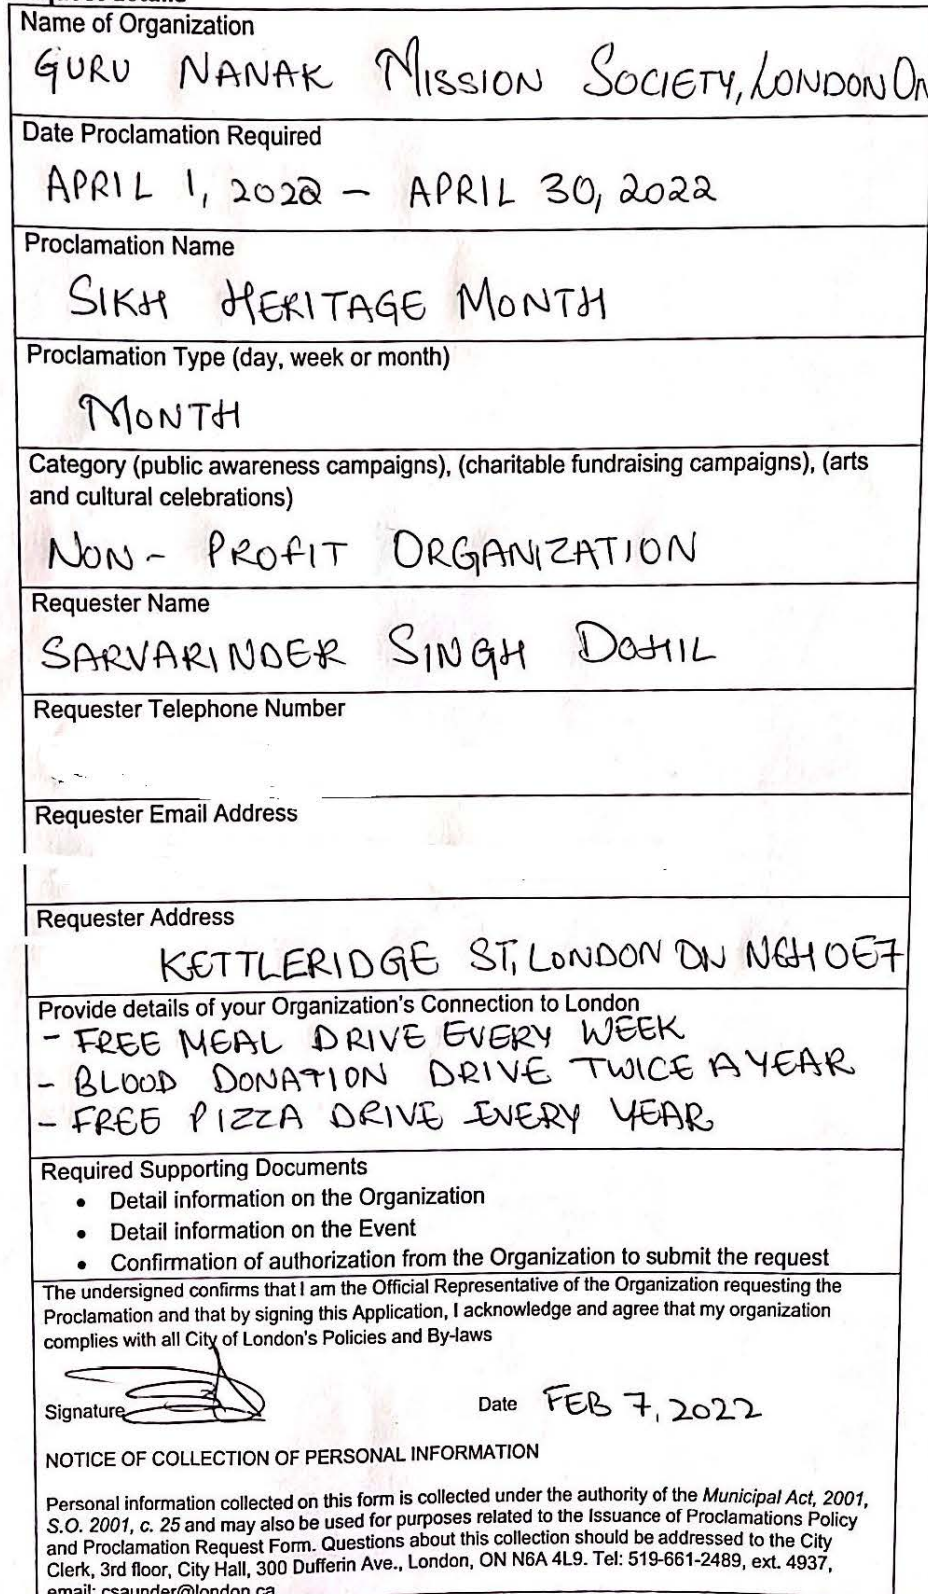 Name of Organization
GURU NANAK MISSION SOCIETY, LONDON ON
Date Proclamation Required
APRIL 1, 2022 - APRIL 30, 2022
Proclamation Name
SIKH HERITAGE MONTH
Proclamation Type (day, week or month)
MONTH
Category (public awareness campaigns), (charitable fundraising campaigns), (arts
and cultural celebrations)
NON - PROFIT ORGANIZATION
Requester Name
SARVARINDER SINGH DOHIL
Requester Telephone Number
Requester Email Address
Requester Address
KETTLERIDGE ST, LONDON ON N6H 0E7
Provide details of your Organization's Connection to London
- FREE MEAL DRIVE EVERY WEEK
- BLOOD DONATION DRIVE TWICE A YEAR
- FREE PIZZA DRIVE EVERY YEAR
Required Supporting Documents
• Detail information on the Organization
• Detail information on the Event
• Confirmation of authorization from the Organization to submit the request
The undersigned confirms that I am the Official Representative of the Organization requesting the
Proclamation and that by signing this Application, I acknowledge and agree that my organization
complies with all City of London's Policies and By-laws
Signature Date FEB 7, 2022
NOTICE OF COLLECTION OF PERSONAL INFORMATION
Personal information collected on this form is collected under the authority of the Municipal Act, 2001,
S.O. 2001, c. 25 and may also be used for purposes related to the Issuance of Proclamations Policy
and Proclamation Request Form. Questions about this collection should be addressed to the City
Clerk, 3rd floor, City Hall, 300 Dufferin Ave., London, ON N6A 4L9. Tel: 519-661-2489, ext. 4937,
email: csaunder@london.ca